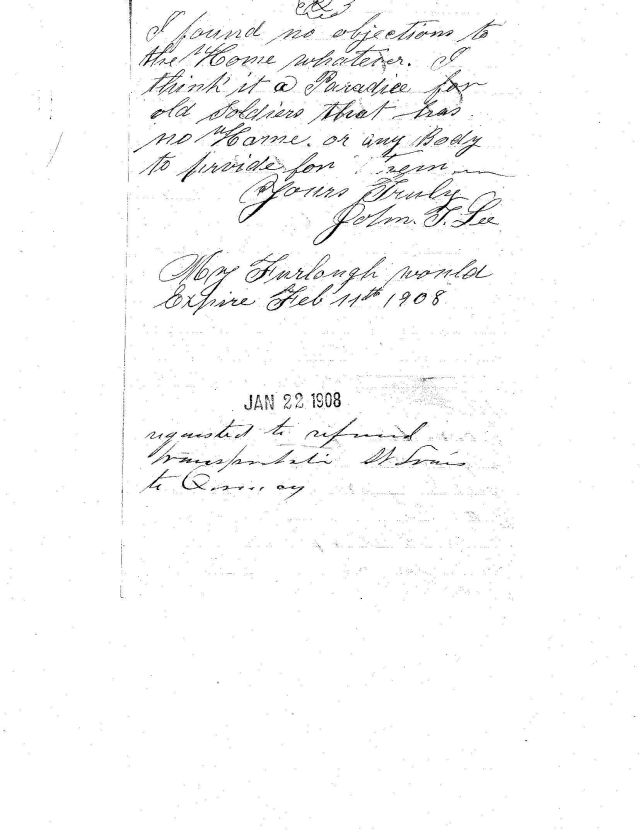 I found no objections to
the Home whatever. I
think it a Paradice for
old Soldiers that has
no Home. or any Body
to provide for
Yours Truly
John. T. Lee
My Furlough would
Expire Feb 11th 1908
JAN 22 1908
requested to refund
transportatin St Louis
to Quincy